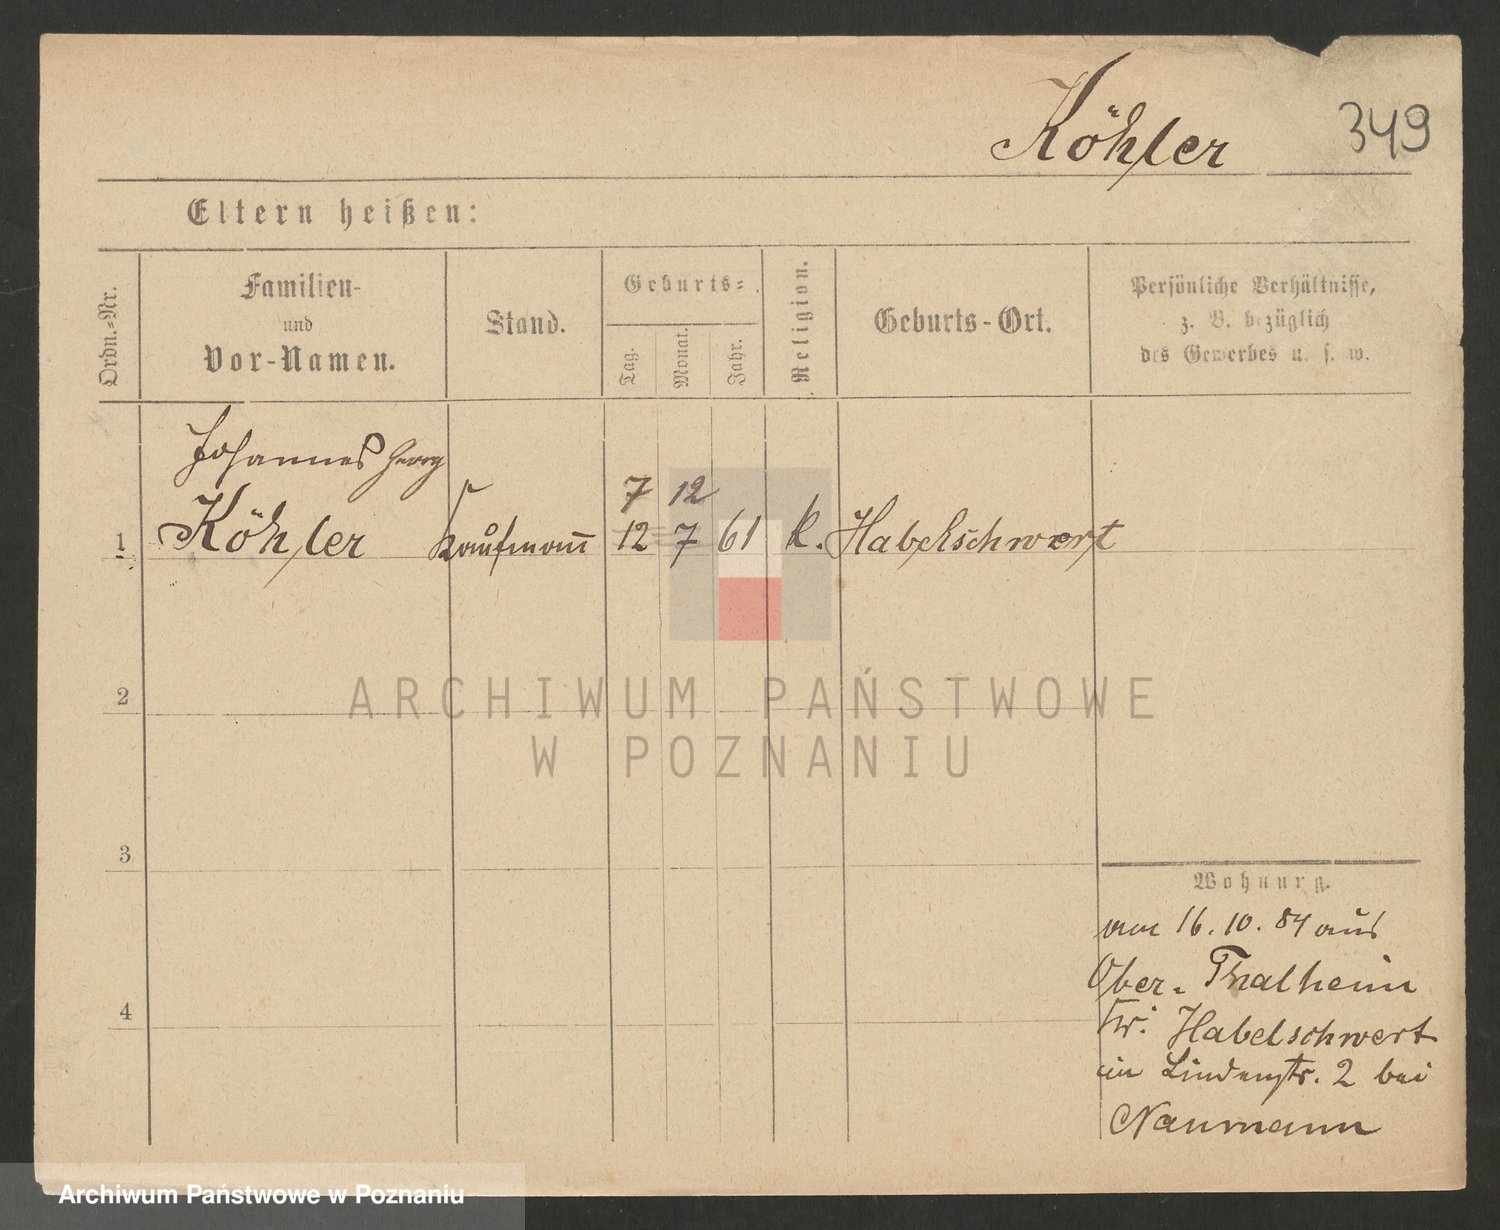 Köhler 349
Eltern heißen:
Ordn.=Nr.
Familien-
und
Vor-Namen.
Stand.
Geburts=
Tag.
Monat.
Jahr.
Religion.
Geburts-Ort.
Persönliche Verhältnisse,
z. B. bezüglich
des Gewerbes u. s. w.
Johannes Georg
7 12
1 Köhler Kaufmann 12 7 61 k. Habelschwert
2
ARCHIWUM PAŃSTWOWE
W POZNANIU
3
Wohnung.
am 16. 10. 84 aus
Ober-Thalheim
Kr. Habelschwert
in Lindenstr. 2 bei
Naumann
4
Archiwum Państwowe w Poznaniu